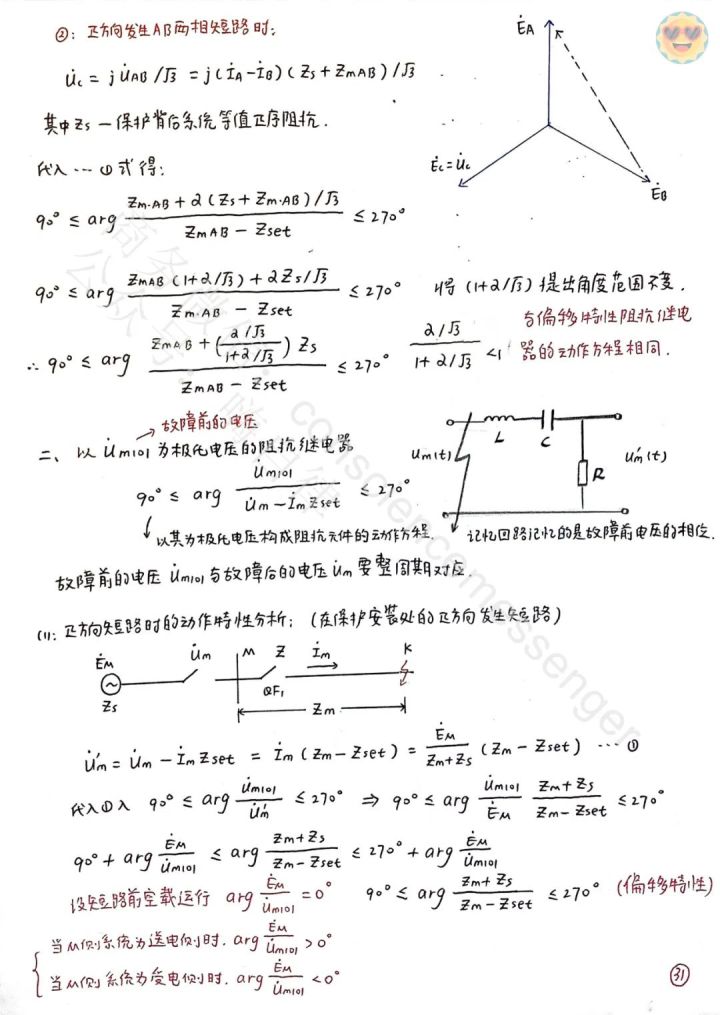 ②: 正方向发生AB两相短路时:
U̇c = jU̇AB/√3 = j(İA-İB)(Zs+ZmAB)/√3
其中Zs—保护背后系统等值正序阻抗.
代入…①式得:
90° ≤ arg (Zm·AB + 2(Zs+Zm·AB)/√3)/(ZmAB - Zset) ≤ 270°
ĖA
Ėc=U̇c
ĖB
90° ≤ arg (ZmAB(1+2/√3)+2Zs/√3)/(Zm·AB - Zset) ≤ 270° 将(1+2/√3)提出角度范围不变.
∴ 90° ≤ arg (ZmAB + ((2/√3)/(1+2/√3))Zs)/(ZmAB - Zset) ≤ 270° (2/√3)/(1+2/√3) <1
与偏移特性阻抗继电
器的动作方程相同.
故障前的电压
二、以U̇m|0|为极化电压的阻抗继电器
90° ≤ arg U̇m|0|/(U̇m-İmZset) ≤ 270°
以其为极化电压构成阻抗元件的动作方程.
Um(t) L C R Um′(t)
记忆回路记忆的是故障前电压的相位.
故障前的电压U̇m|0|与故障后的电压U̇m要整周期对应.
(1): 正方向短路时的动作特性分析: (在保护安装处的正方向发生短路)
ĖM U̇m M Z İm K
Zs QF1
Zm
U̇m′ = U̇m - İmZset = İm(Zm-Zset) = ĖM/(Zm+Zs) (Zm-Zset) …①
代入①入 90° ≤ arg U̇m|0|/U̇m′ ≤ 270° ⇒ 90° ≤ arg U̇m|0|/ĖM (Zm+Zs)/(Zm-Zset) ≤ 270°
90° + arg ĖM/U̇m|0| ≤ arg (Zm+Zs)/(Zm-Zset) ≤ 270° + arg ĖM/U̇m|0|
设短路前空载运行 arg ĖM/U̇m|0| = 0° 90° ≤ arg (Zm+Zs)/(Zm-Zset) ≤ 270° (偏移特性)
当M侧系统为送电侧时. arg ĖM/U̇m|0| > 0°
当M侧系统为受电侧时. arg ĖM/U̇m|0| < 0°
31